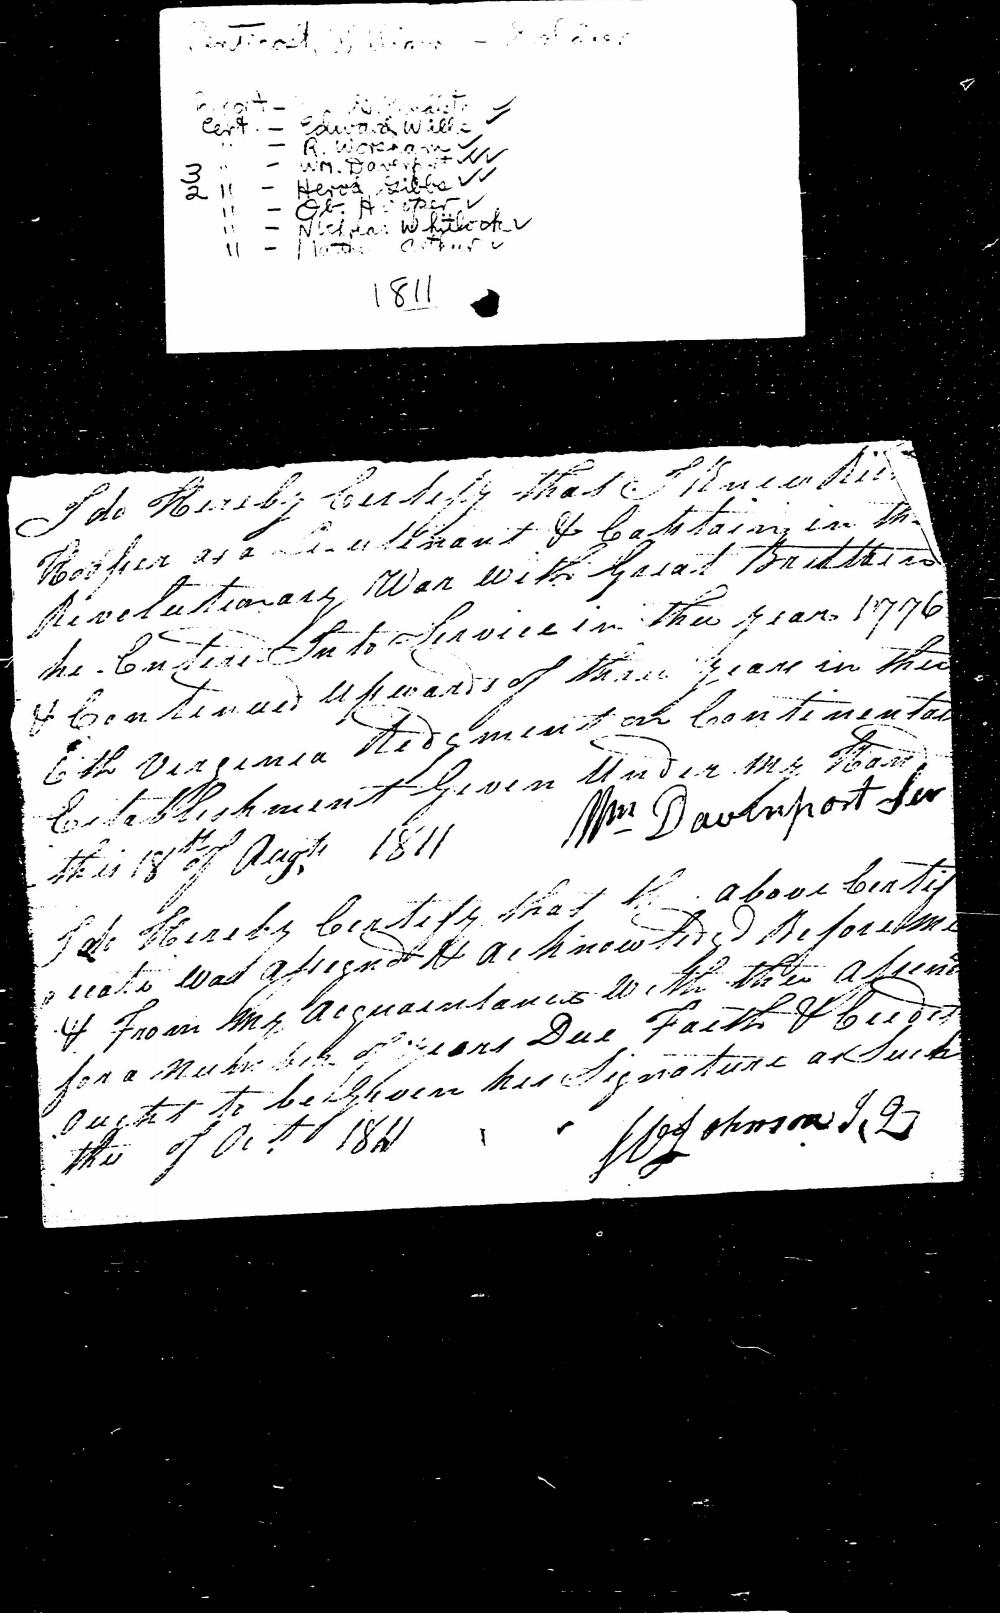 Pentecost, William - Soldier
Cert. - Edward Wills ✓
" - R. Workham ✓
3 " - Wm. Davenport ✓✓✓
2 " - Herod Gibbs ✓✓
" - Ob. Hooper ✓
" - Nicholas Whitlock ✓
" -
1811
I do Hereby Certefy that I Knew
as a Lieutenant & Captain in the
Revolutionary War with Great Brittain
he Entered Into Service in the year 1776
& Continued upwards of three years in the
6th Virginia Redgment on Continental
Establishment Given Under my Hand
this 18th of Augt. 1811 Wm Davenport Ser
I do Hereby Certefy that the above Certif
icate was assignd & acknowledgd Before me
& From my acquaintance with the
for a number of years Due Faith & Credit
ought to be Given his Signature as Such
the of Oct. 1811 Johnson